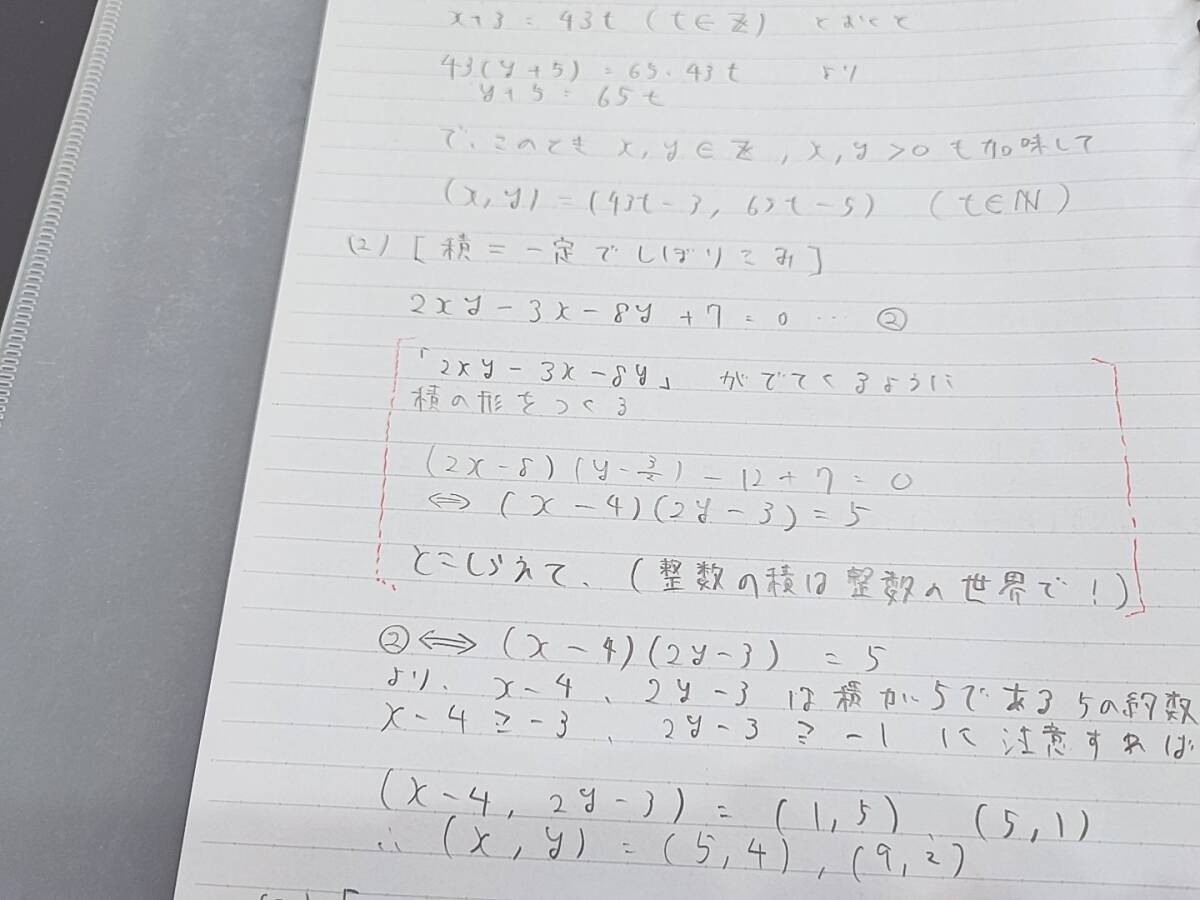 x+3 = 43t (t∈Z) とおくと
43(y+5) = 65・43t より
y+5 = 65t
で、このとき x, y ∈ Z, x, y > 0 も加味して
(x, y) = (43t-3, 65t-5) (t∈N)
(2) [積=一定でしぼりこみ]
2xy - 3x - 8y + 7 = 0 … ②
「2xy - 3x - 8y」 がでてくるように
積の形をつくる
(2x-8)(y-3/2) - 12 + 7 = 0
⇔ (x-4)(2y-3) = 5
とこしらえて、(整数の積は整数の世界で!)
②⇔ (x-4)(2y-3) = 5
より、x-4、2y-3 は積が5である5の約数
x-4 ≧ -3、2y-3 ≧ -1 に注意すれば
(x-4, 2y-3) = (1, 5)、(5, 1)
∴ (x, y) = (5, 4), (9, 2)